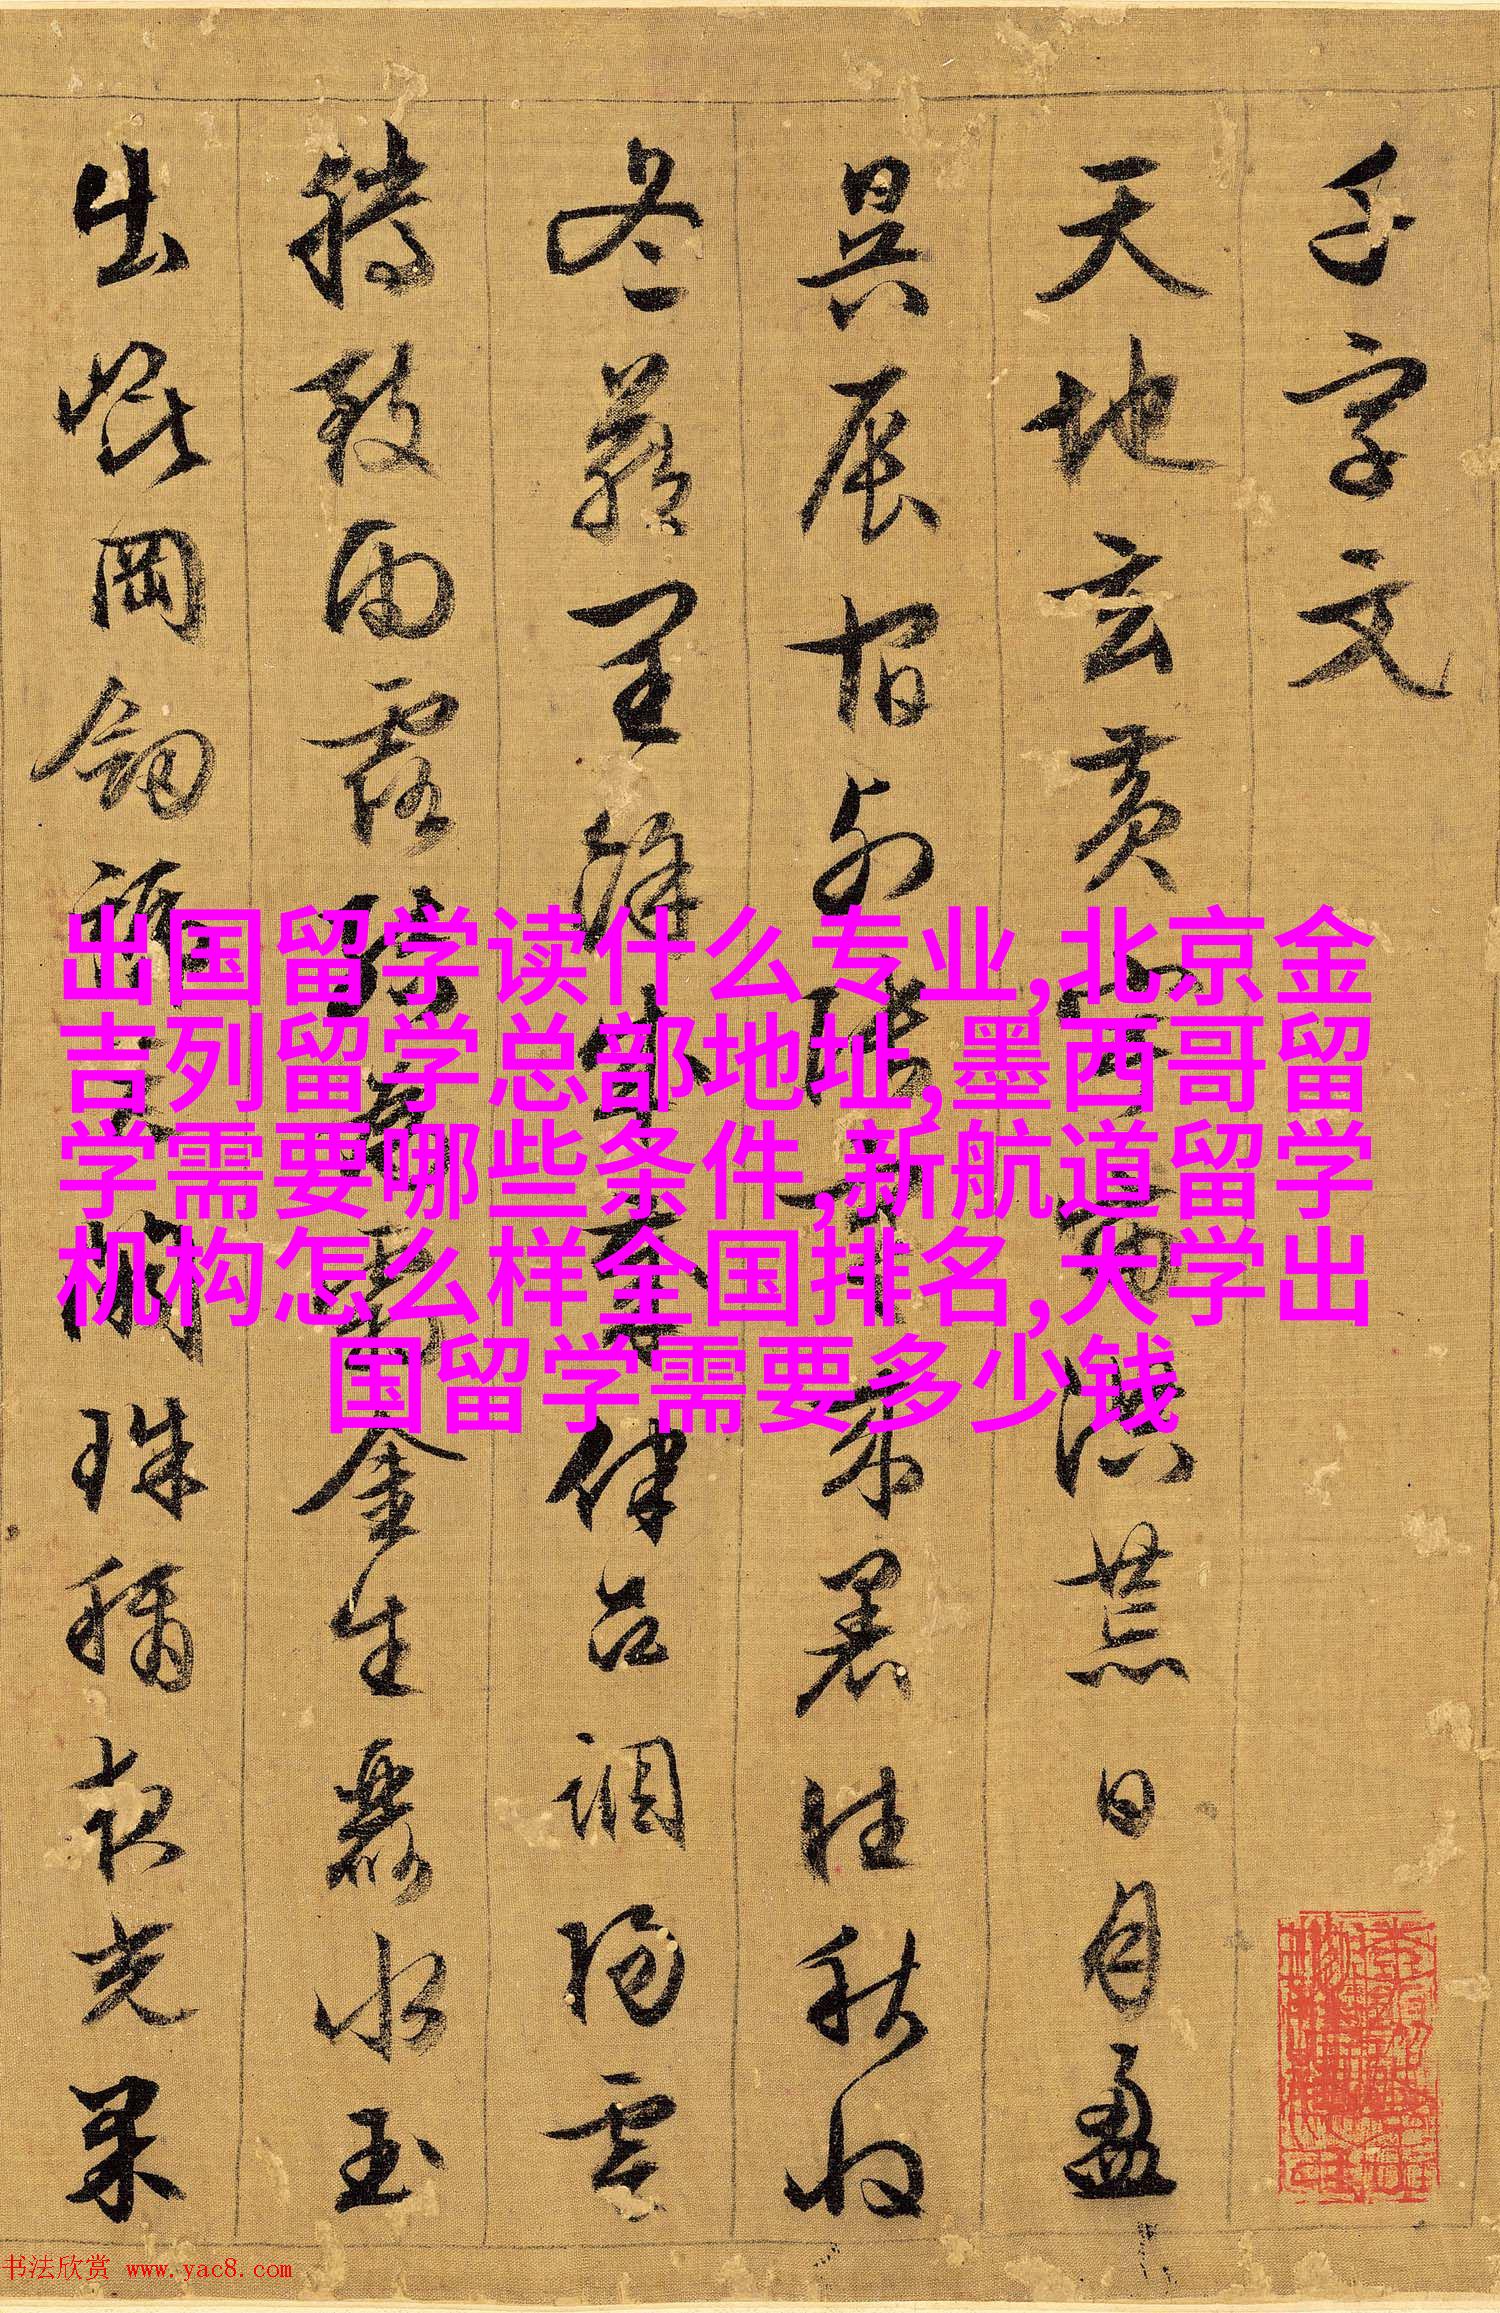 千字文
天地玄黃宇宙洪荒日月盈
昃辰宿列張寒来暑往秋收
冬藏閏餘成歲律吕調陽雲
騰致雨露結為霜金生麗水玉
出崑岡劔號巨闕珠稱夜光果
出国留学读什么专业,北京金
吉列留学总部地址,墨西哥留
学需要哪些条件,新航道留学
机构怎么样全国排名,大学出
国留学需要多少钱
书法欣赏 www.yac8.com